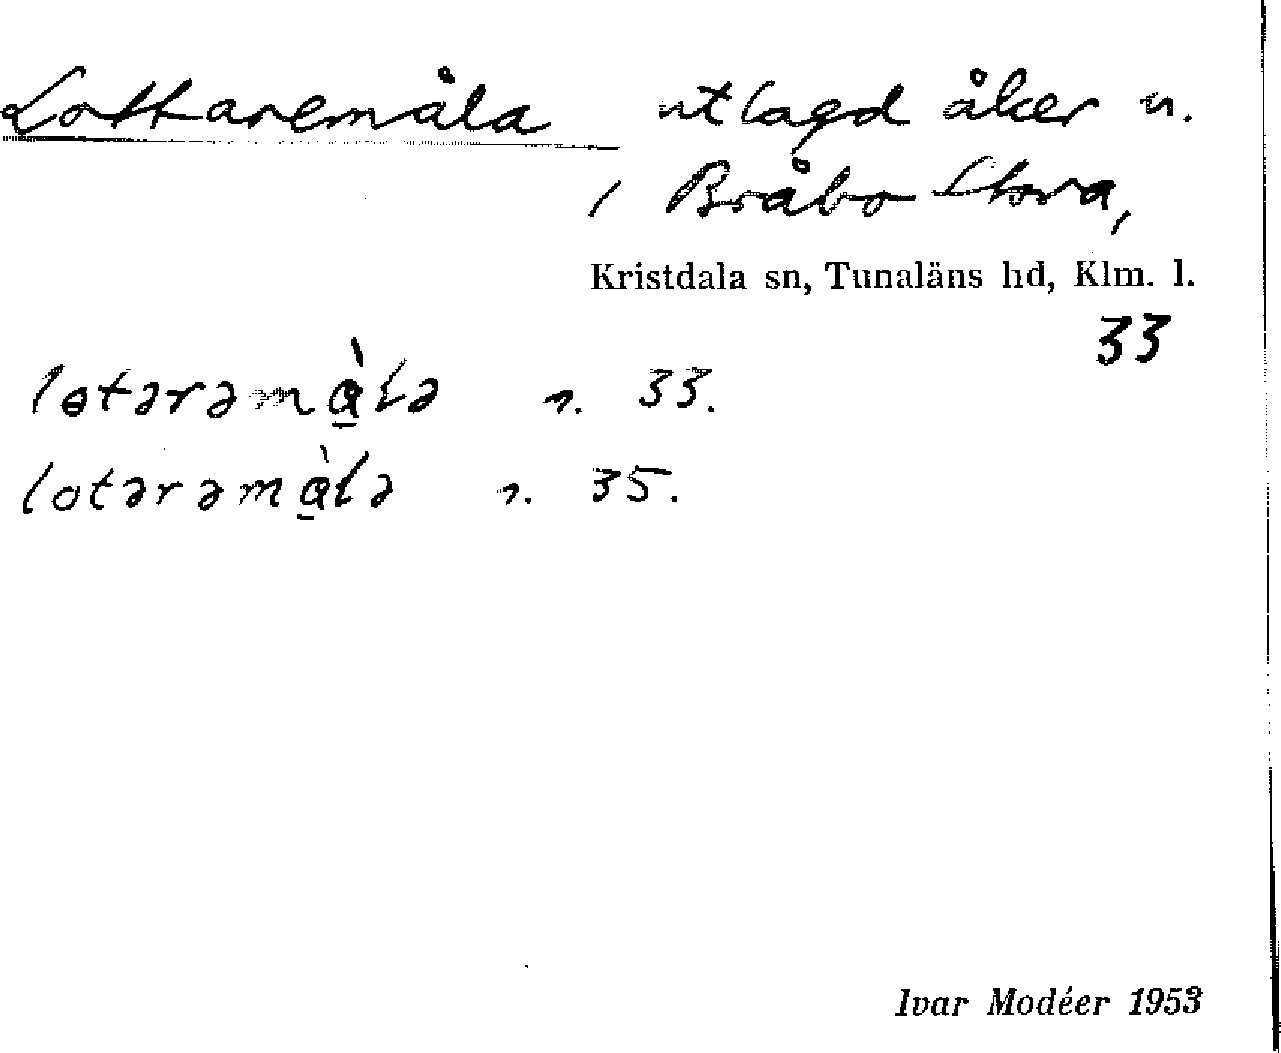 Lottaremåla utlagd åker n.
i Bråbo Stora,
Kristdala sn, Tunaläns hd, Klm. l.
33
lɵtərəmà̱lə r. 33.
lotərəmà̱lə r. 35.
Ivar Modéer 1953